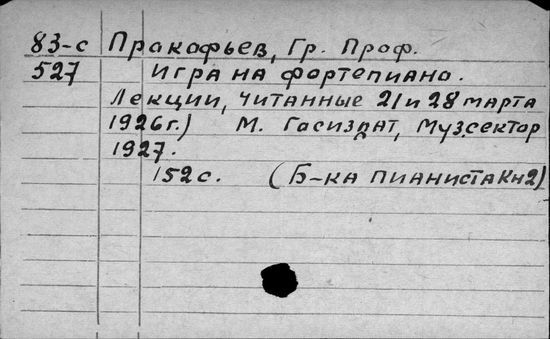 83-с Прокофьев, Гр. Проф.
527 Игра на фортепиано.
Лекции, читанные 21 и 28 марта
1926г.) М. Госиздат, Муз.сектор
1927.
152с. (Б-ка пианиста Кн2)